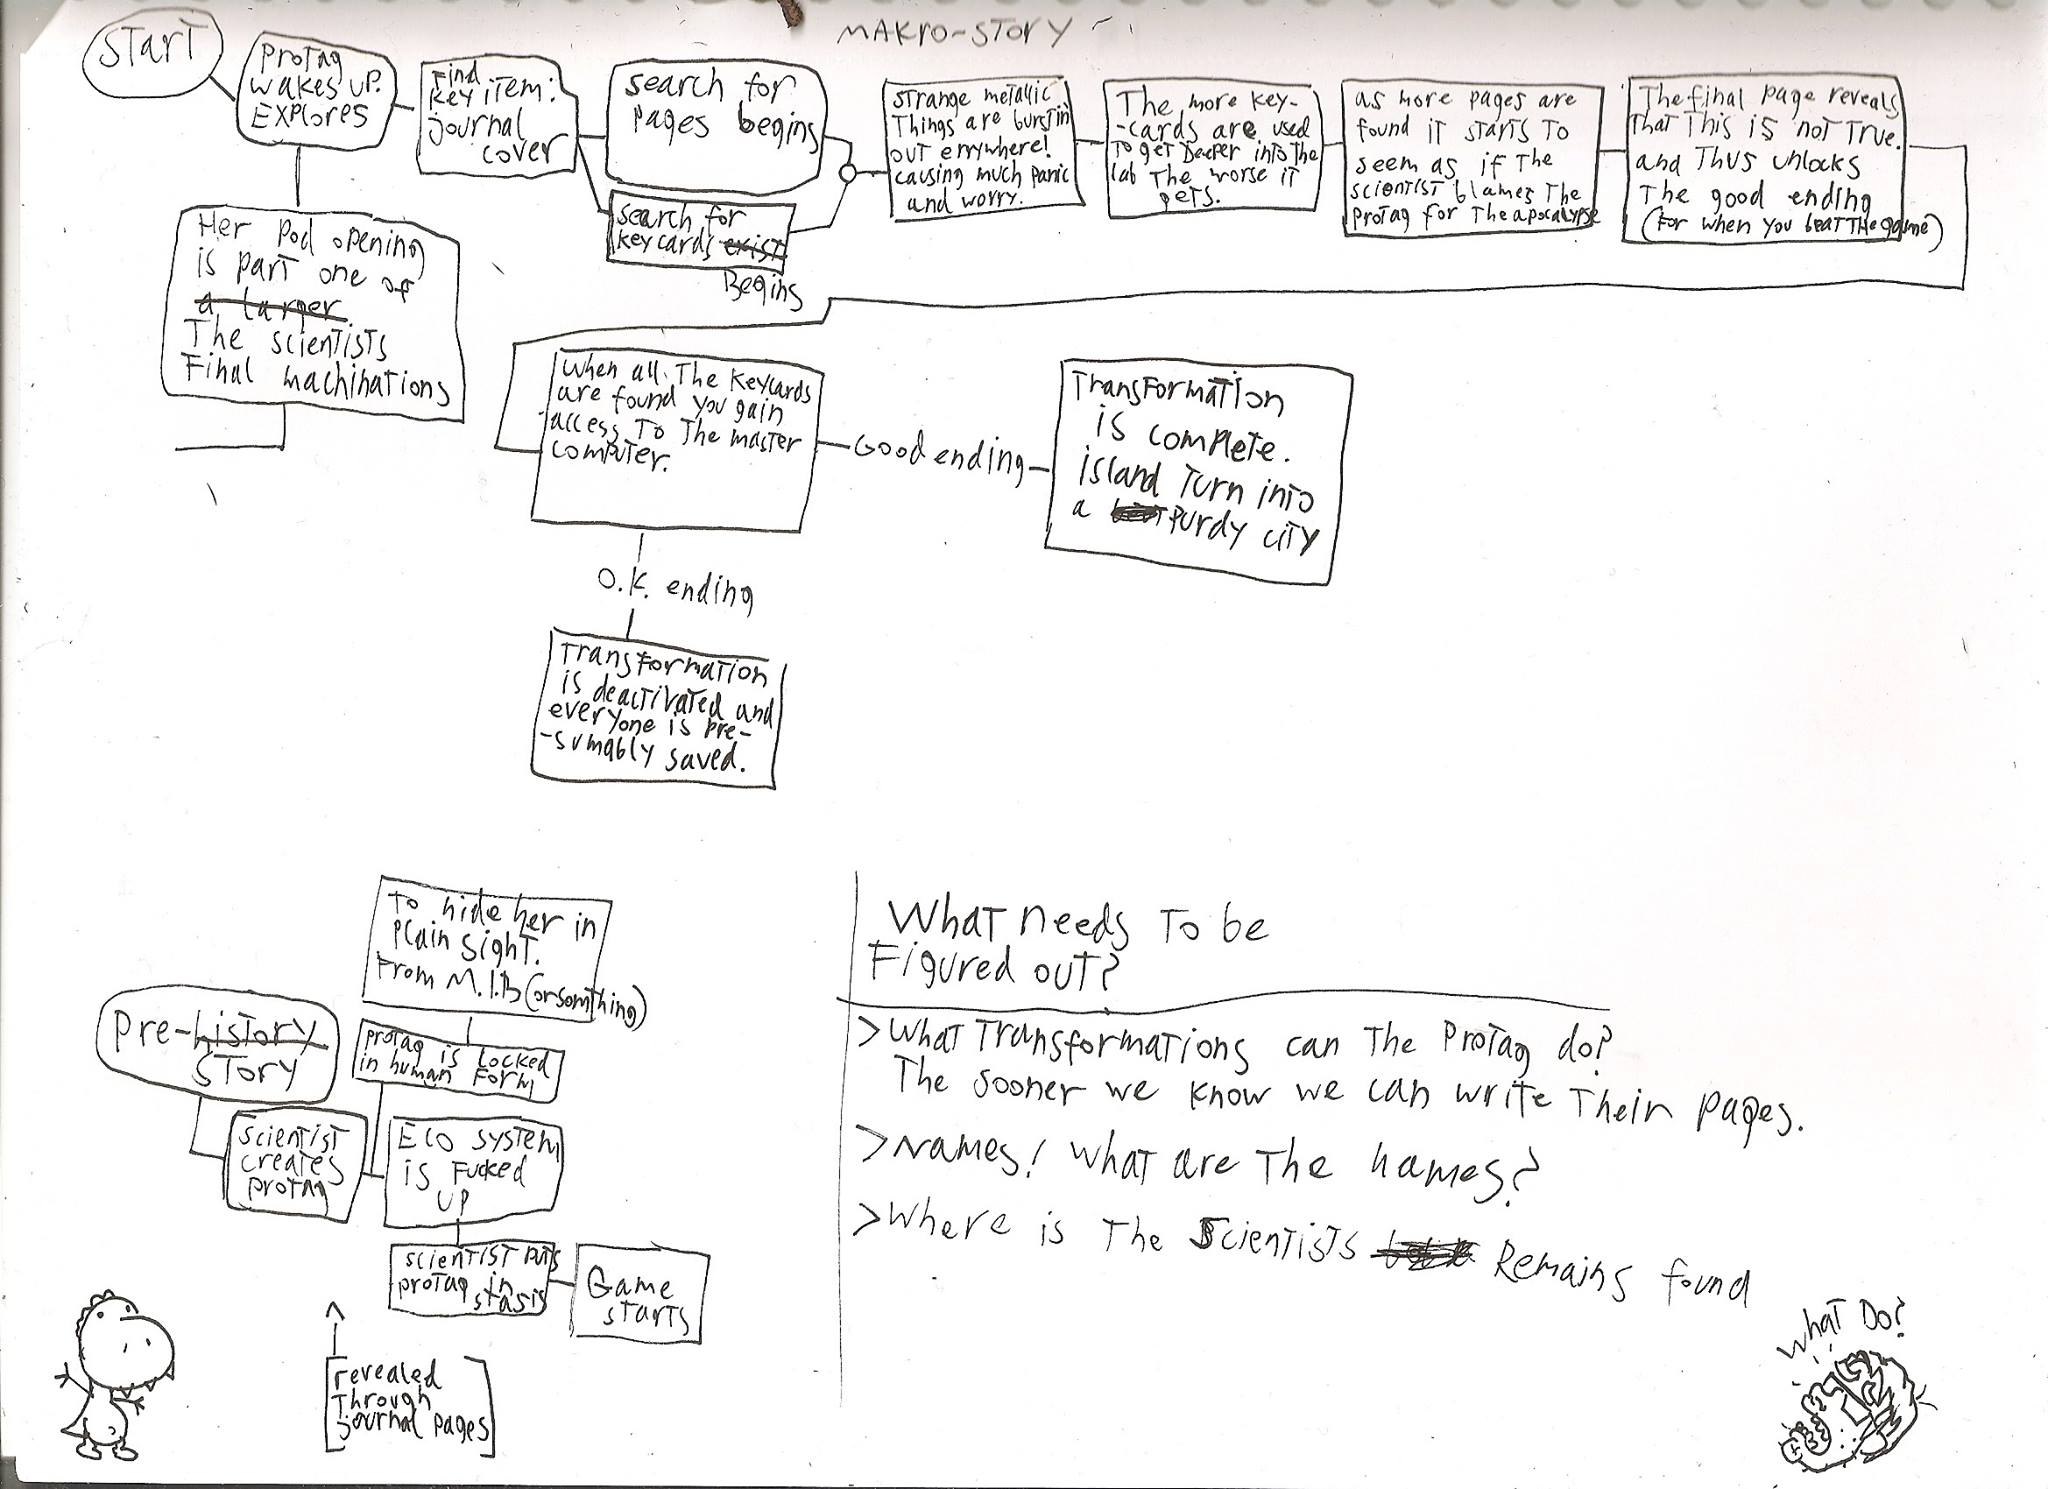 MAKRO-STORY
START
PROTAG
WAKES UP.
EXPLORES
Find
Key item:
Journal
cover
search for
pages begins
search for
keycards exist
Begins
strange metallic
Things are burstin
out errywhere!
causing much panic
and worry.
The more key-
-cards are used
To get Deeper into The
lab The worse it
gets.
as more pages are
found it starts To
seem as if The
scientist blames The
Protag for The apocalypse
The final page reveals
That This is not True.
and Thus unlocks
The good ending
(For when you beat The game)
Her Pod opening
is part one of
a larger
The scientists
Final machinations
When all The keycards
are found you gain
access To The master
computer.
Good ending
Transformation
is complete.
island Turn into
a Purdy city
O.K. ending
Transformation
is deactivated and
everyone is pre-
-sumably saved.
To hide her in
plain sight.
From M.I.B (or somthing)
Pre-history
story
Protag is Locked
in human Form
scientist
creates
protag
Eco system
is Fucked
up
scientist puts
protag in
stasis
Game
starts
revealed
Through
journal pages
What needs To be
Figured out?
>What Transformations can The Protag do?
The sooner we know we can write Their pages.
>Names! What are The names?
>Where is The Scientists Remains found
What Do?